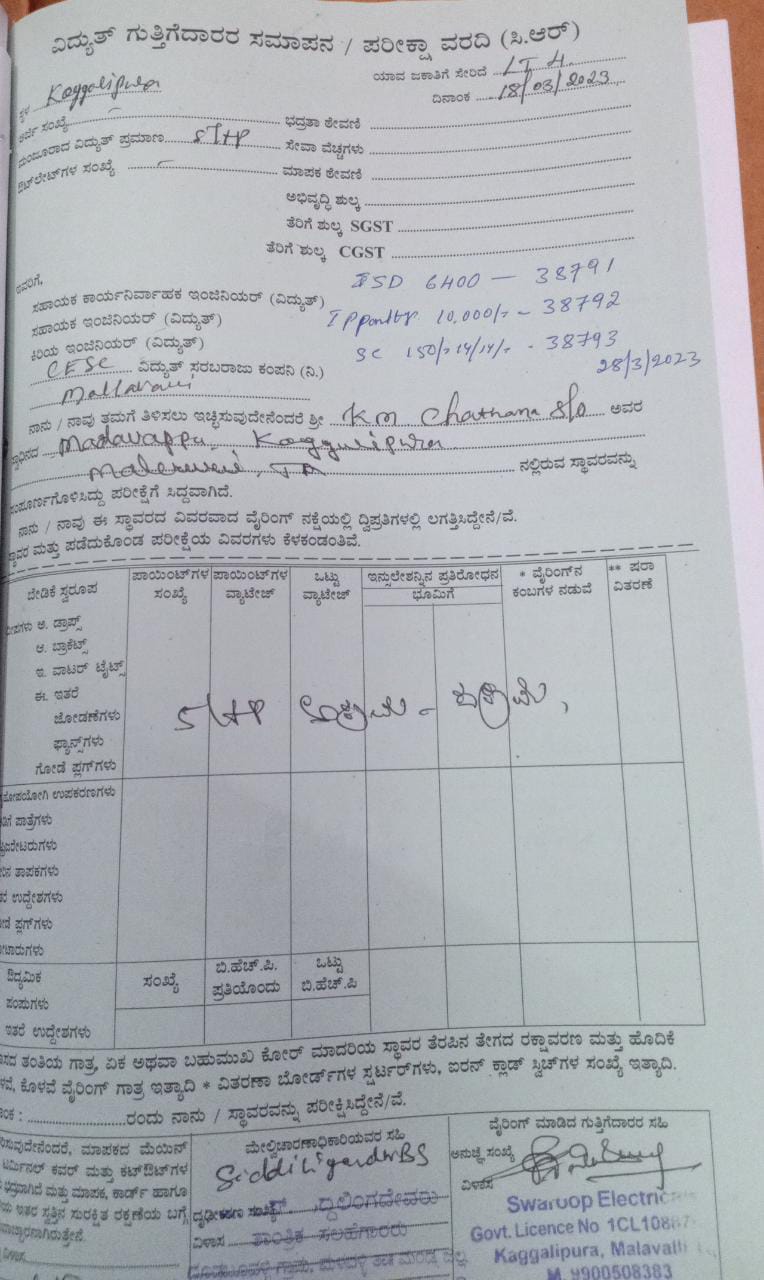 ವಿದ್ಯುತ್ ಗುತ್ತಿಗೆದಾರರ ಸಮಾಪನ / ಪರೀಕ್ಷಾ ವರದಿ (ಸಿ.ಆರ್)
ಯಾವ ಜಕಾತಿಗೆ ಸೇರಿದೆ LT 4
Kaggalipura
ದಿನಾಂಕ 18/03/2023
ಸಂಖ್ಯೆ
ಭದ್ರತಾ ಠೇವಣಿ
ಮಂಜೂರಾದ ವಿದ್ಯುತ್ ಪ್ರಮಾಣ 5 HP ಸೇವಾ ವೆಚ್ಚಗಳು
ಔಟ್‌ಲೇಟ್‌ಗಳ ಸಂಖ್ಯೆ ಮಾಪಕ ಠೇವಣಿ
ಅಭಿವೃದ್ಧಿ ಶುಲ್ಕ
ತೆರಿಗೆ ಶುಲ್ಕ SGST
ತೆರಿಗೆ ಶುಲ್ಕ CGST
ISD 6400 — 38791
ಸಹಾಯಕ ಕಾರ್ಯನಿರ್ವಾಹಕ ಇಂಜಿನಿಯರ್ (ವಿದ್ಯುತ್)
10,000/- - 38792
ಸಹಾಯಕ ಇಂಜಿನಿಯರ್ (ವಿದ್ಯುತ್)
ಕಿರಿಯ ಇಂಜಿನಿಯರ್ (ವಿದ್ಯುತ್)
SC 150/- 14/14/- - 38793
28/3/2023
CESC ವಿದ್ಯುತ್ ಸರಬರಾಜು ಕಂಪನಿ (ನಿ.)
Mallavali
ನಾನು / ನಾವು ತಮಗೆ ತಿಳಿಸಲು ಇಚ್ಛಿಸುವುದೇನೆಂದರೆ ಶ್ರೀ KM Chathana S/o ಅವರ
Madavappa, Kaggalipura
ನಲ್ಲಿರುವ ಸ್ಥಾವರವನ್ನು
ಸಂಪೂರ್ಣಗೊಳಿಸಿದ್ದು ಪರೀಕ್ಷೆಗೆ ಸಿದ್ಧವಾಗಿದೆ.
ನಾನು / ನಾವು ಈ ಸ್ಥಾವರದ ವಿವರವಾದ ವೈರಿಂಗ್ ನಕ್ಷೆಯಲ್ಲಿ ದ್ವಿಪ್ರತಿಗಳಲ್ಲಿ ಲಗತ್ತಿಸಿದ್ದೇನೆ/ವೆ.
ಸ್ಥಾವರ ಮತ್ತು ಪಡೆದುಕೊಂಡ ಪರೀಕ್ಷೆಯ ವಿವರಗಳು ಕೆಳಕಂಡಂತಿವೆ.
ಬೇಡಿಕೆ ಸ್ವರೂಪ
ಪಾಯಿಂಟ್‌ಗಳ ಸಂಖ್ಯೆ
ಪಾಯಿಂಟ್‌ಗಳ ವ್ಯಾಟೇಜ್
ಒಟ್ಟು ವ್ಯಾಟೇಜ್
ಇನ್ಸುಲೇಶನ್ನಿನ ಪ್ರತಿರೋಧನ
ಭೂಮಿಗೆ
* ವೈರಿಂಗ್‌ನ ಕಂಬಗಳ ನಡುವೆ
** ಷರಾ ವಿತರಣೆ
ಅ. ಡ್ರಾಪ್ಸ್
ಆ. ಬ್ರಾಕೆಟ್ಸ್
ಇ. ವಾಟರ್ ಟೈಟ್ಸ್
ಈ. ಇತರೆ
ಜೋಡಣೆಗಳು
ಫ್ಯಾನ್ಸ್‌ಗಳು
ಗೋಡೆ ಪ್ಲಗ್‌ಗಳು
5 HP ಅಕ್ರಮ - ಸಕ್ರಮ,
ಉಪಕರಣಗಳು
ಪಾತ್ರೆಗಳು
ತಾಪಕಗಳು
ಉದ್ದೇಶಗಳು
ಪ್ಲಗ್‌ಗಳು
ಔದ್ಯಮಿಕ
ಪಂಪುಗಳು
ಇತರೆ ಉದ್ದೇಶಗಳು
ಸಂಖ್ಯೆ
ಬಿ.ಹೆಚ್.ಪಿ. ಪ್ರತಿಯೊಂದು
ಒಟ್ಟು ಬಿ.ಹೆಚ್.ಪಿ
ತಂತಿಯ ಗಾತ್ರ, ಏಕ ಅಥವಾ ಬಹುಮುಖ ಕೋರ್ ಮಾದರಿಯ ಸ್ಥಾವರ ತೆರಪಿನ ತೇಗದ ರಕ್ಷಾವರಣ ಮತ್ತು ಹೊದಿಕೆ
ಕೊಳವೆ ವೈರಿಂಗ್ ಗಾತ್ರ ಇತ್ಯಾದಿ * ವಿತರಣಾ ಬೋರ್ಡ್‌ಗಳ ಸ್ಟರ್ಟರ್‌ಗಳು, ಐರನ್ ಕ್ಲಾಡ್ ಸ್ವಿಚ್‌ಗಳ ಸಂಖ್ಯೆ ಇತ್ಯಾದಿ.
ರಂದು ನಾನು / ಸ್ಥಾವರವನ್ನು ಪರೀಕ್ಷಿಸಿದ್ದೇನೆ/ವೆ.
ಮಾಪಕದ ಮೆಯಿನ್
ಟರ್ಮಿನಲ್ ಕವರ್ ಮತ್ತು ಕಟ್‌ಔಟ್‌ಗಳ
ಭದ್ರವಾಗಿದೆ ಮತ್ತು ಮಾಪಕ, ಕಾರ್ಡ್ ಹಾಗೂ
ಇತರ ಸ್ವತ್ತಿನ ಸುರಕ್ಷಿತ ರಕ್ಷಣೆಯ ಬಗ್ಗೆ
ವಿಳಾಸ
ಮೇಲ್ವಿಚಾರಣಾಧಿಕಾರಿಯವರ ಸಹಿ
ದೃಢೀಕರಣ ಸಂಖ್ಯೆ
ವಿಳಾಸ ತಾಂತ್ರಿಕ ಸಲಹೆಗಾರರು
ವೈರಿಂಗ್ ಮಾಡಿದ ಗುತ್ತಿಗೆದಾರರ ಸಹಿ
ಅನುಜ್ಞೆ ಸಂಖ್ಯೆ
ವಿಳಾಸ
Swaroop Electric
Govt. Licence No 1CL1088
Kaggalipura, Malavalli
M 9900508383